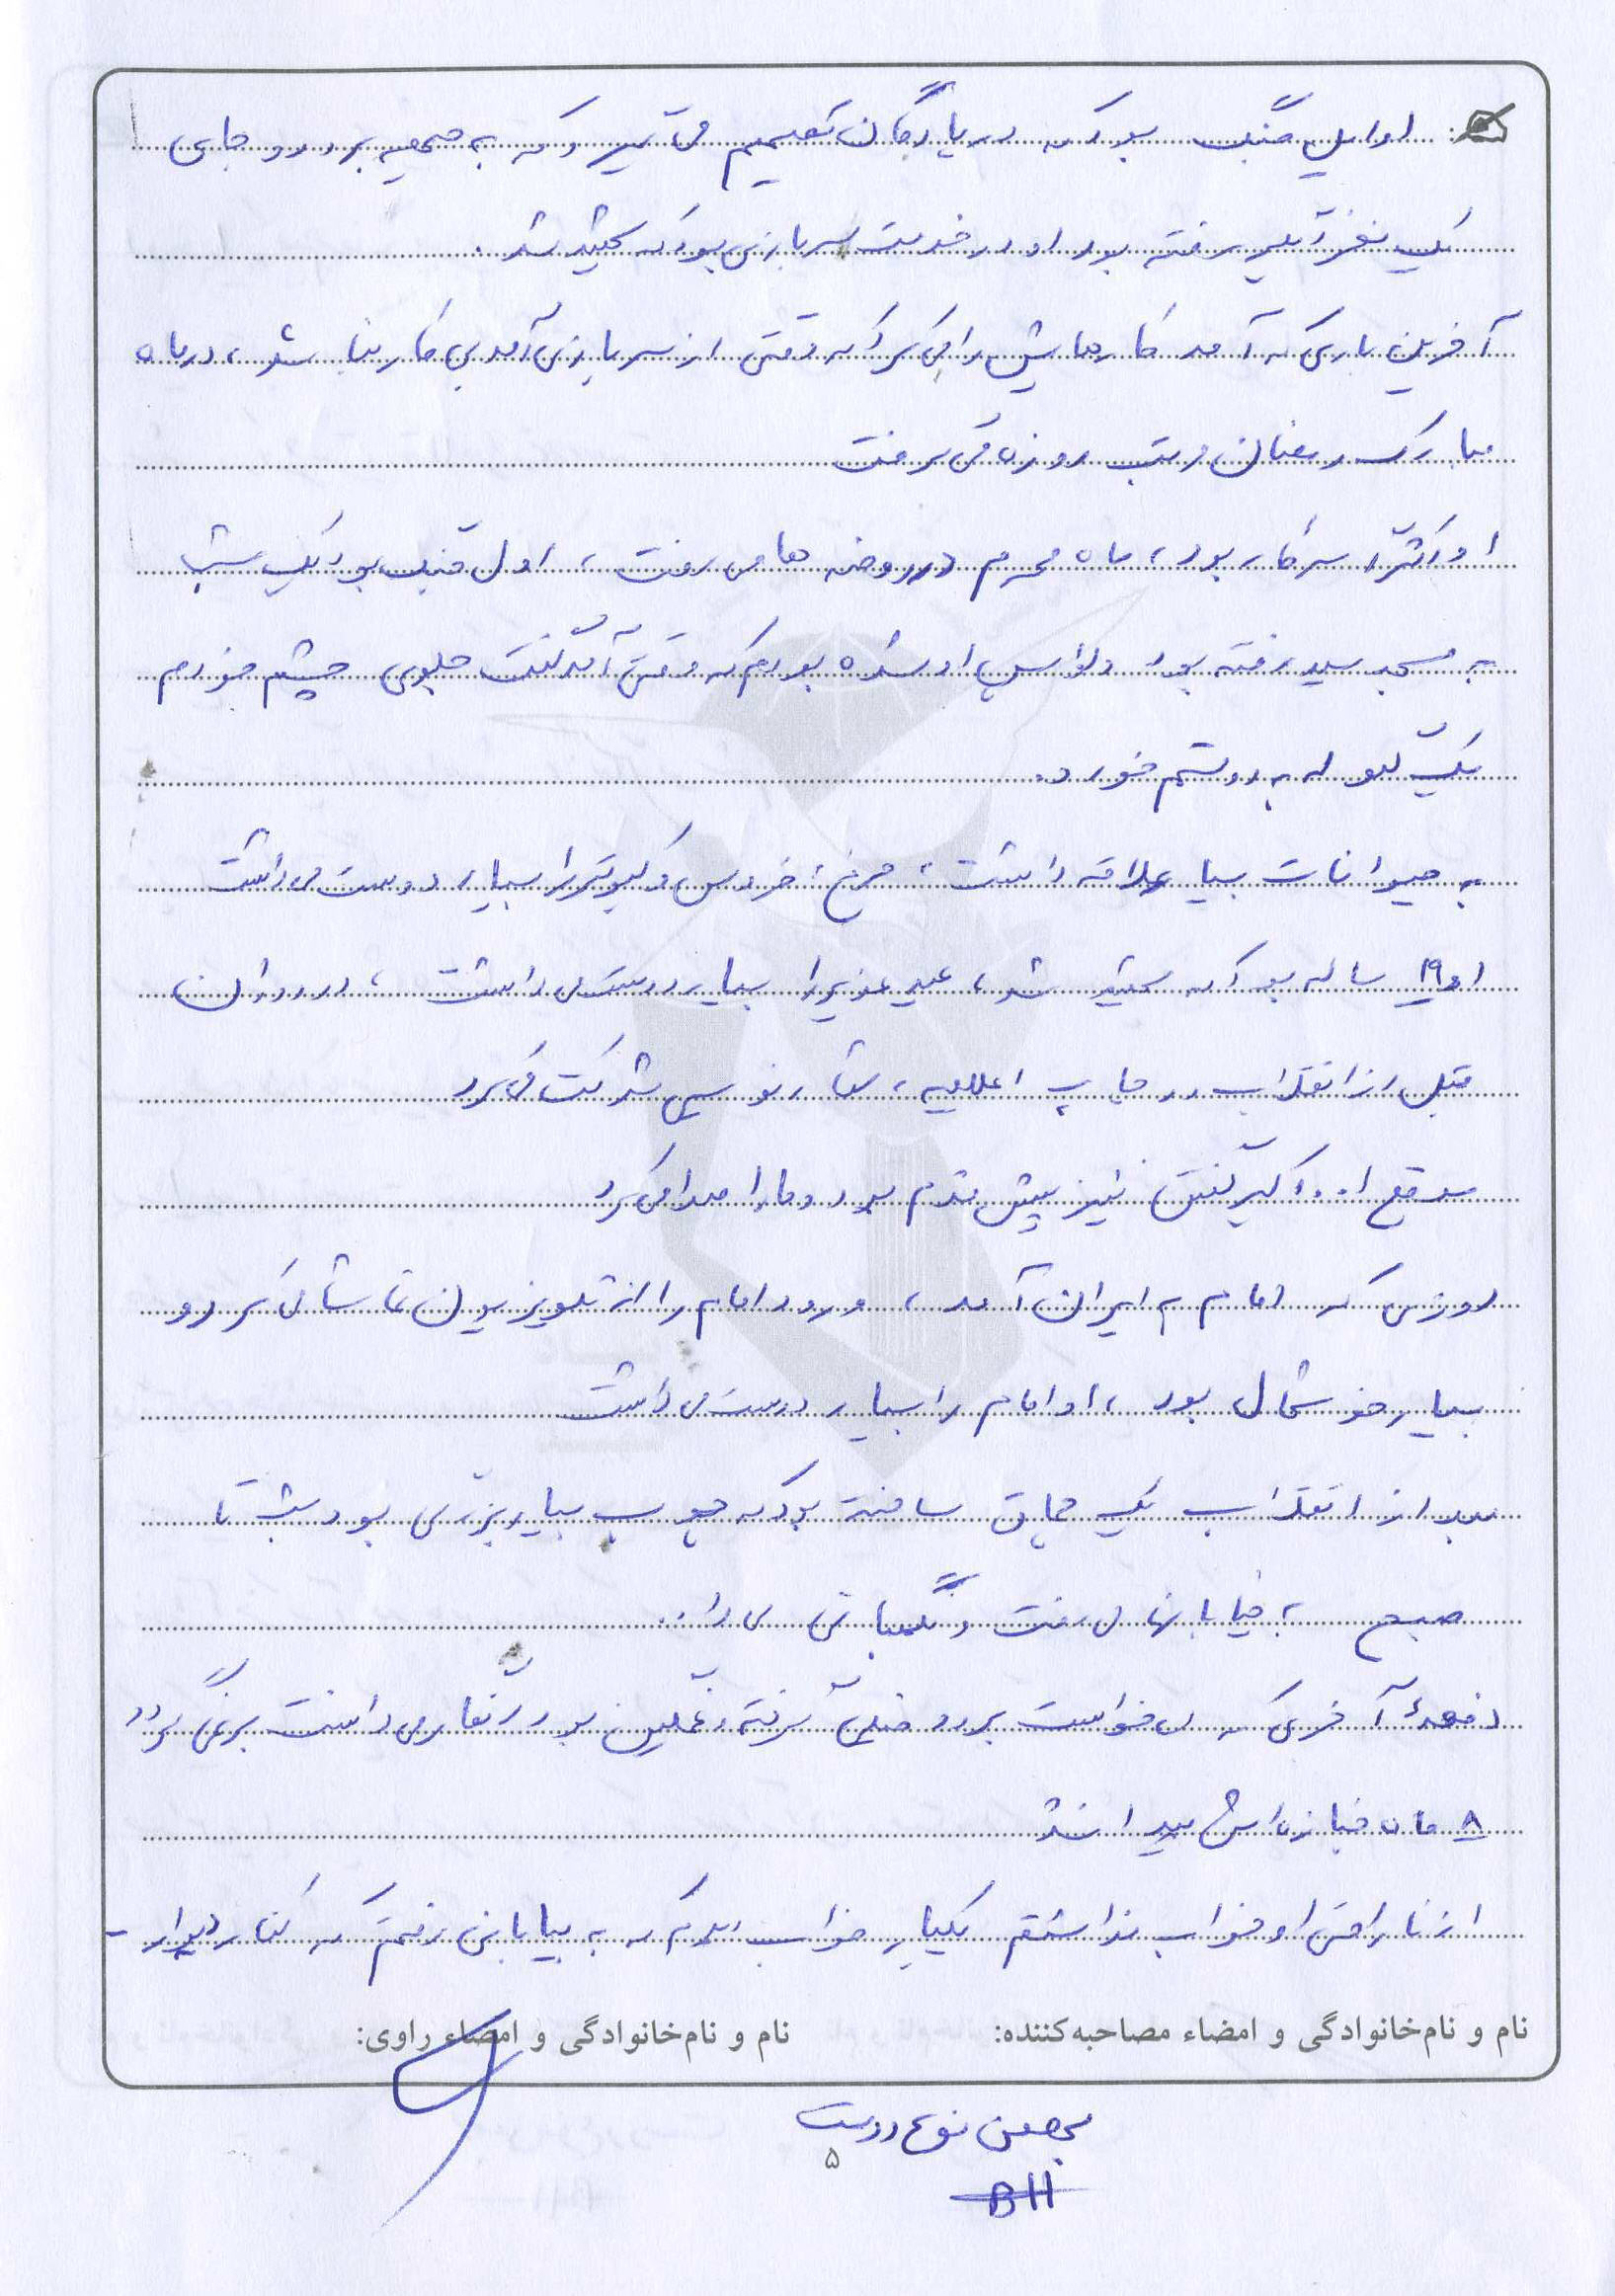 اوایل جنگ بود که در پادگان تصمیم می گیرد که به جبهه برود و جای
یک نفر دیگر رفته بود او در خدمت سربازی بود که شهید شد.
آخرین باری که آمد کارهایش را می کرد که وقتی از سربازی آمد بی کار نباشد، در ماه
مبارک رمضان مرتب روزه می گرفت
او اکثراً سرکار بود، ماه محرم در روضه ها می رفت، اول جنگ بود یک شب
به مسجد سید رفته بود دلواپس او شده بودم که وقتی آمد گفت جلوی چشم خودم
یک گلوله به دوستم خورد.
به حیوانات بسیار علاقه داشت، مرغ، خروس و کبوتر را بسیار دوست می داشت
او ۱۹ ساله بود که شهید شد، عید غدیر را بسیار دوست می داشت، در دوران
قبل از انقلاب در چاپ اعلامیه، شعارنویسی شرکت می کرد
موقع ا... اکبر گفتن نیز پیش قدم بود و ما را صدا می کرد
روزی که امام به ایران آمد، ورود امام را از تلویزیون تماشا می کرد و
بسیار خوشحال بود، او امام را بسیار دوست می داشت
بعد از انقلاب یک چماق ساخته بود که چوب بسیار بزرگی بود شب تا
صبح به خیابانها می رفت و نگهبانی می داد..
دفعهٔ آخری که می خواست برود خیلی گرفته و غمگین بود انگار می دانست برنمی گردد
۸ ماه جنازه اش پیدا نشد
از ناراحتی او خواب نداشتم یکبار خواب دیدم که به بیابانی رفتم که کنار دیوار -
نام و نام‌خانوادگی و امضاء مصاحبه‌کننده: نام و نام‌خانوادگی و امضاء راوی:
بهمن نوع دوست
۵
BH